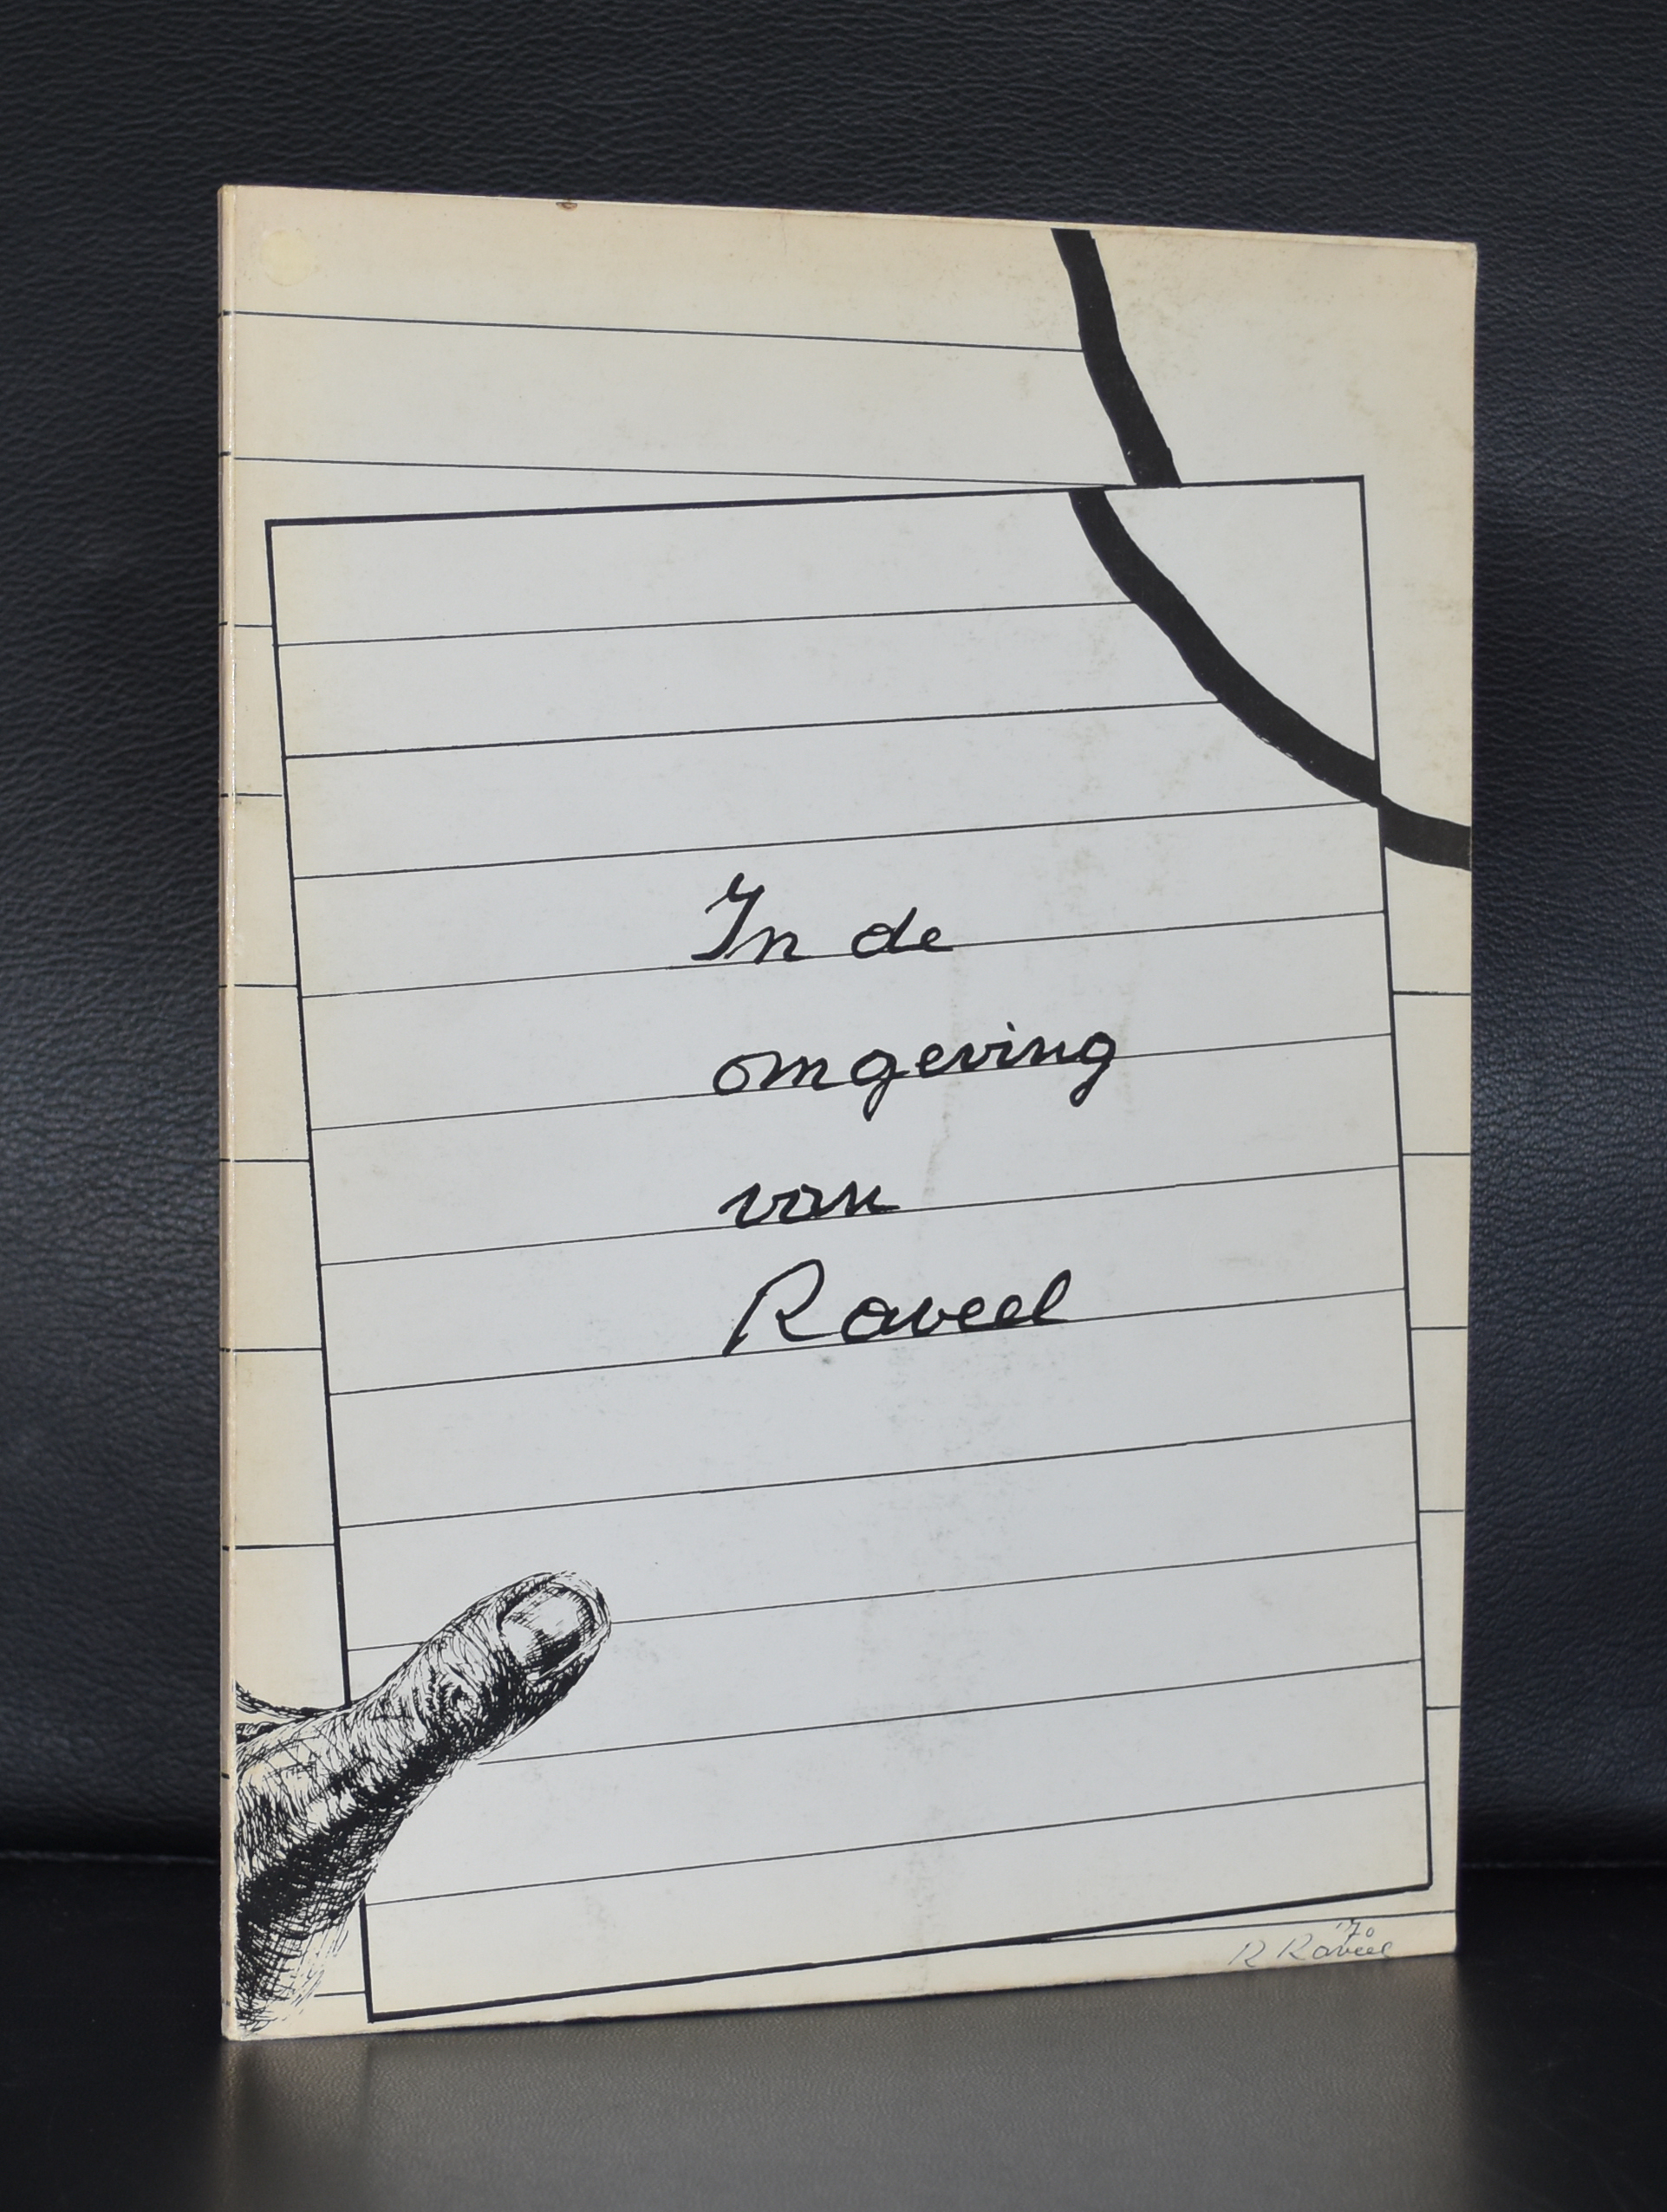 In de
omgeving
van
Raveel
'70
R Raveel